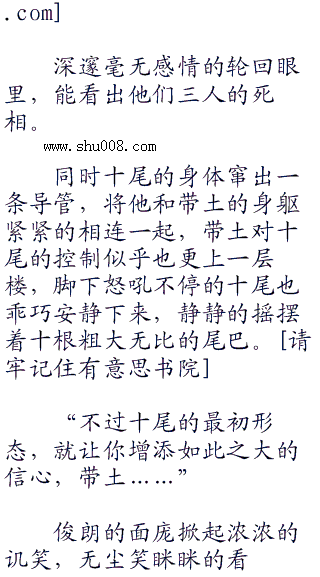 .com]
深邃毫无感情的轮回眼
里，能看出他们三人的死
相。
www.shu008.com
同时十尾的身体窜出一
条导管，将他和带土的身躯
紧紧的相连一起，带土对十
尾的控制似乎也更上一层
楼，脚下怒吼不停的十尾也
乖巧安静下来，静静的摇摆
着十根粗大无比的尾巴。[请
牢记住有意思书院]
“不过十尾的最初形
态，就让你增添如此之大的
信心，带土……”
俊朗的面庞掀起浓浓的
讥笑，无尘笑眯眯的看